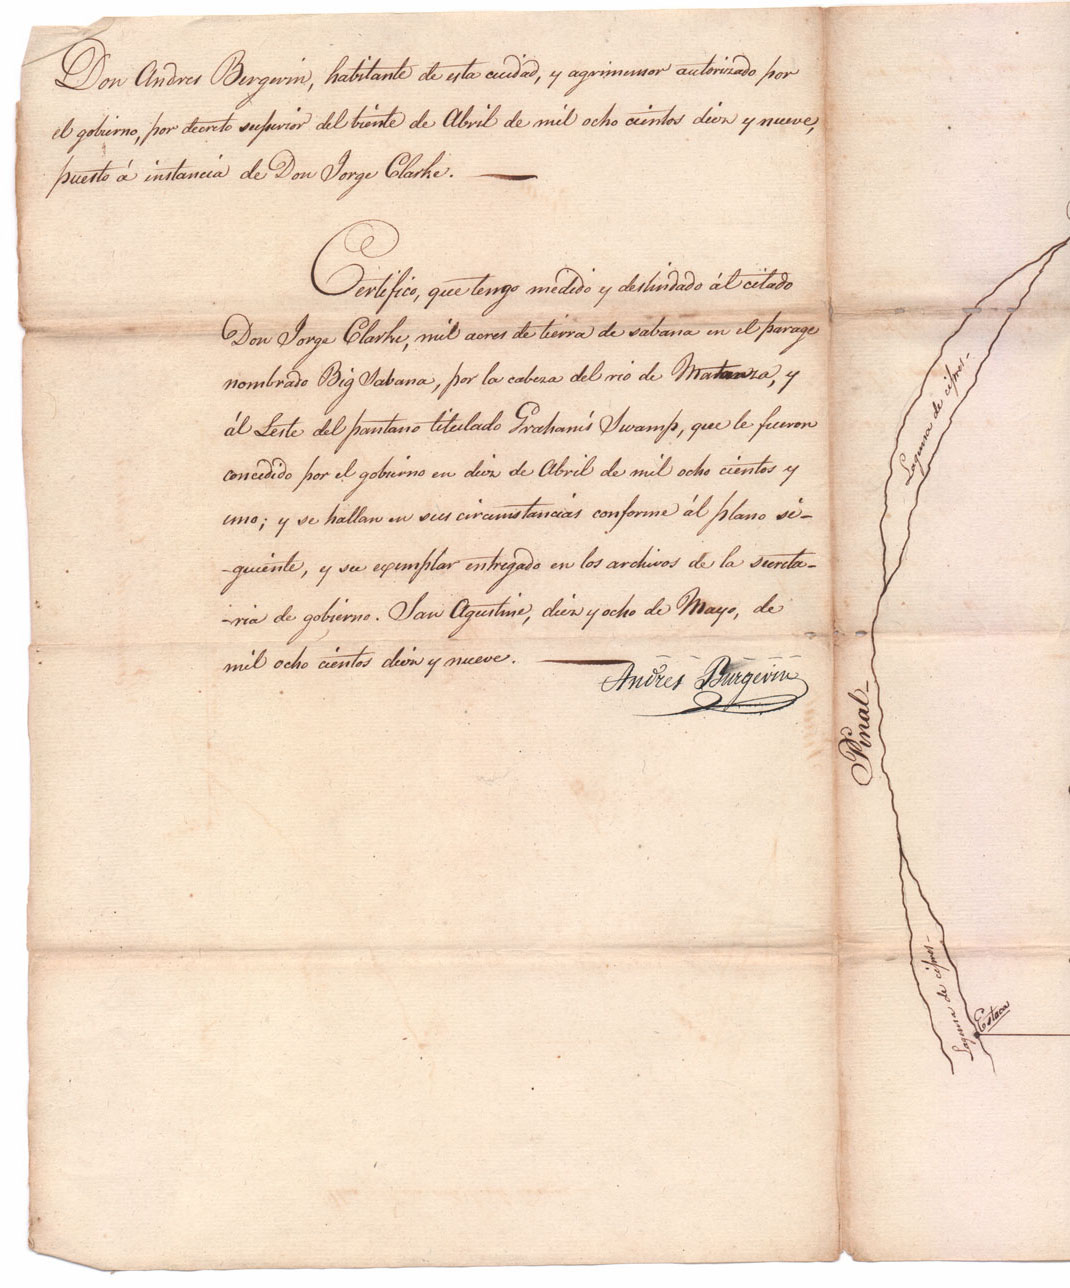 Don Andres Bergevin, habitante de esta ciudad, y agrimensor autorizado por
el gobierno, por decreto superior del viente de Abril de mil ocho cientos diez y nueve,
puesto á instancia de Don Jorge Clarke.
Certifico, que tengo medido y deslindado ál citado
Don Jorge Clarke, mil acres de tierra de sabana en el parage
nombrado Big Sabana, por la cabeza del rio de Matanza, y
ál Leste del pantano titulado Graham's Swamp, que le fueron
concedido por el gobierno en diez de Abril de mil ocho cientos y
uno; y se hallan en sus circumstancias conforme ál plano si-
-guiente, y su exemplar entregado en los archivos de la secreta-
-ria de gobierno. San Agustine, diez y ocho de Mayo, de
mil ocho cientos diez y nueve.
Andres Burgevin
Laguna de cipres-
Pinal-
Laguna de cipres-
Estaca